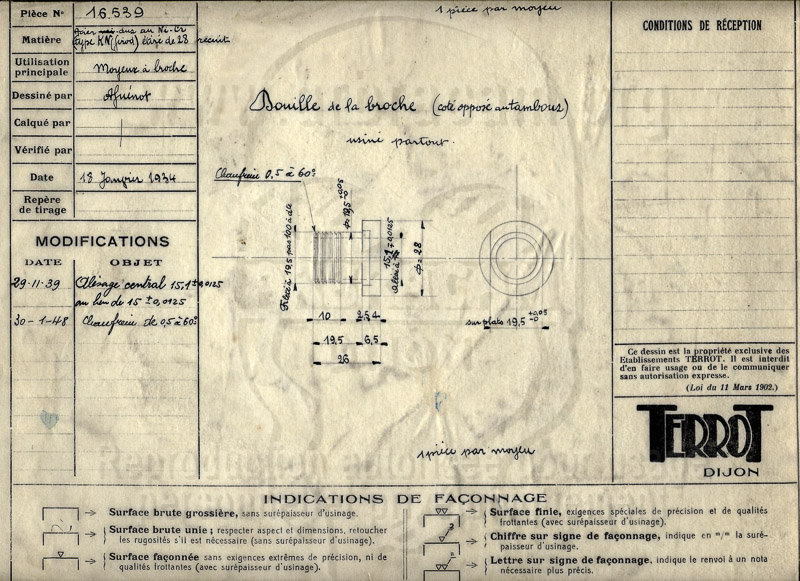 Pièce N° 16.539
Matière
type KN (irod) étiré de 28 recuit
Utilisation principale Moyeux à broche
Dessiné par
Calqué par
Vérifié par
Date 18 Janvier 1934
Repère de tirage
MODIFICATIONS
DATE OBJET
29-11-39 Alésage central 15,1 ± 0,0125
au lieu de 15 ± 0,0125
30-1-48 Chanfrein de 0,5 à 60°
1 pièce par moyeu
Douille de la broche (coté opposé au tambour)
usiné partout.
Chanfrein 0,5 à 60°
Fileté à 19,5 pas 100 à dte
+0,05
-0
15,1 ± 0,0125
φ = 28
10 2,5 4
19,5 6,5
26
sur plats 19,5 +0,05 -0
1 pièce par moyeu
CONDITIONS DE RÉCEPTION
Ce dessin est la propriété exclusive des
Etablissements TERROT. Il est interdit
d'en faire usage ou de le communiquer
sans autorisation expresse.
(Loi du 11 Mars 1902.)
TERROT
DIJON
INDICATIONS DE FAÇONNAGE
Surface brute grossière, sans surépaisseur d'usinage.
Surface brute unie; respecter aspect et dimensions, retoucher
les rugosités s'il est nécessaire (sans surépaisseur d'usinage).
Surface façonnée sans exigences extrêmes de précision, ni de
qualités frottantes (avec surépaisseur d'usinage).
Surface finie, exigences spéciales de précision et de qualités
frottantes (avec surépaisseur d'usinage).
3
Chiffre sur signe de façonnage, indique en m/m la suré-
paisseur d'usinage.
Lettre sur signe de façonnage, indique le renvoi à un nota
nécessaire plus précis.